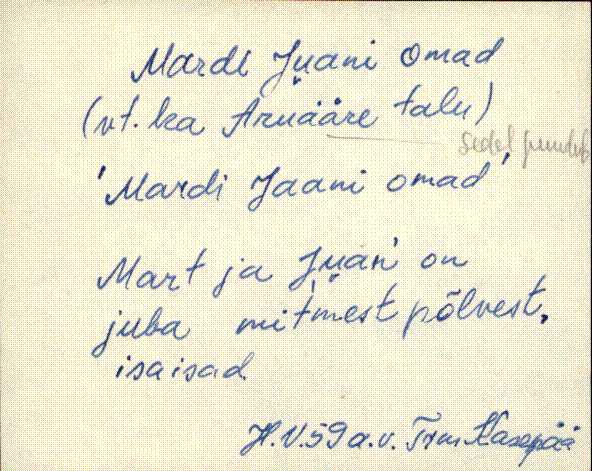 Mardi Juani omad
(vt. ka Aruääre talu)
sedel puudub
'Mardi Jaani omad'
Mart ja Juan on
juba mitmest põlvest,
isaisad
H.V.59 a.v. Trm Kasepää